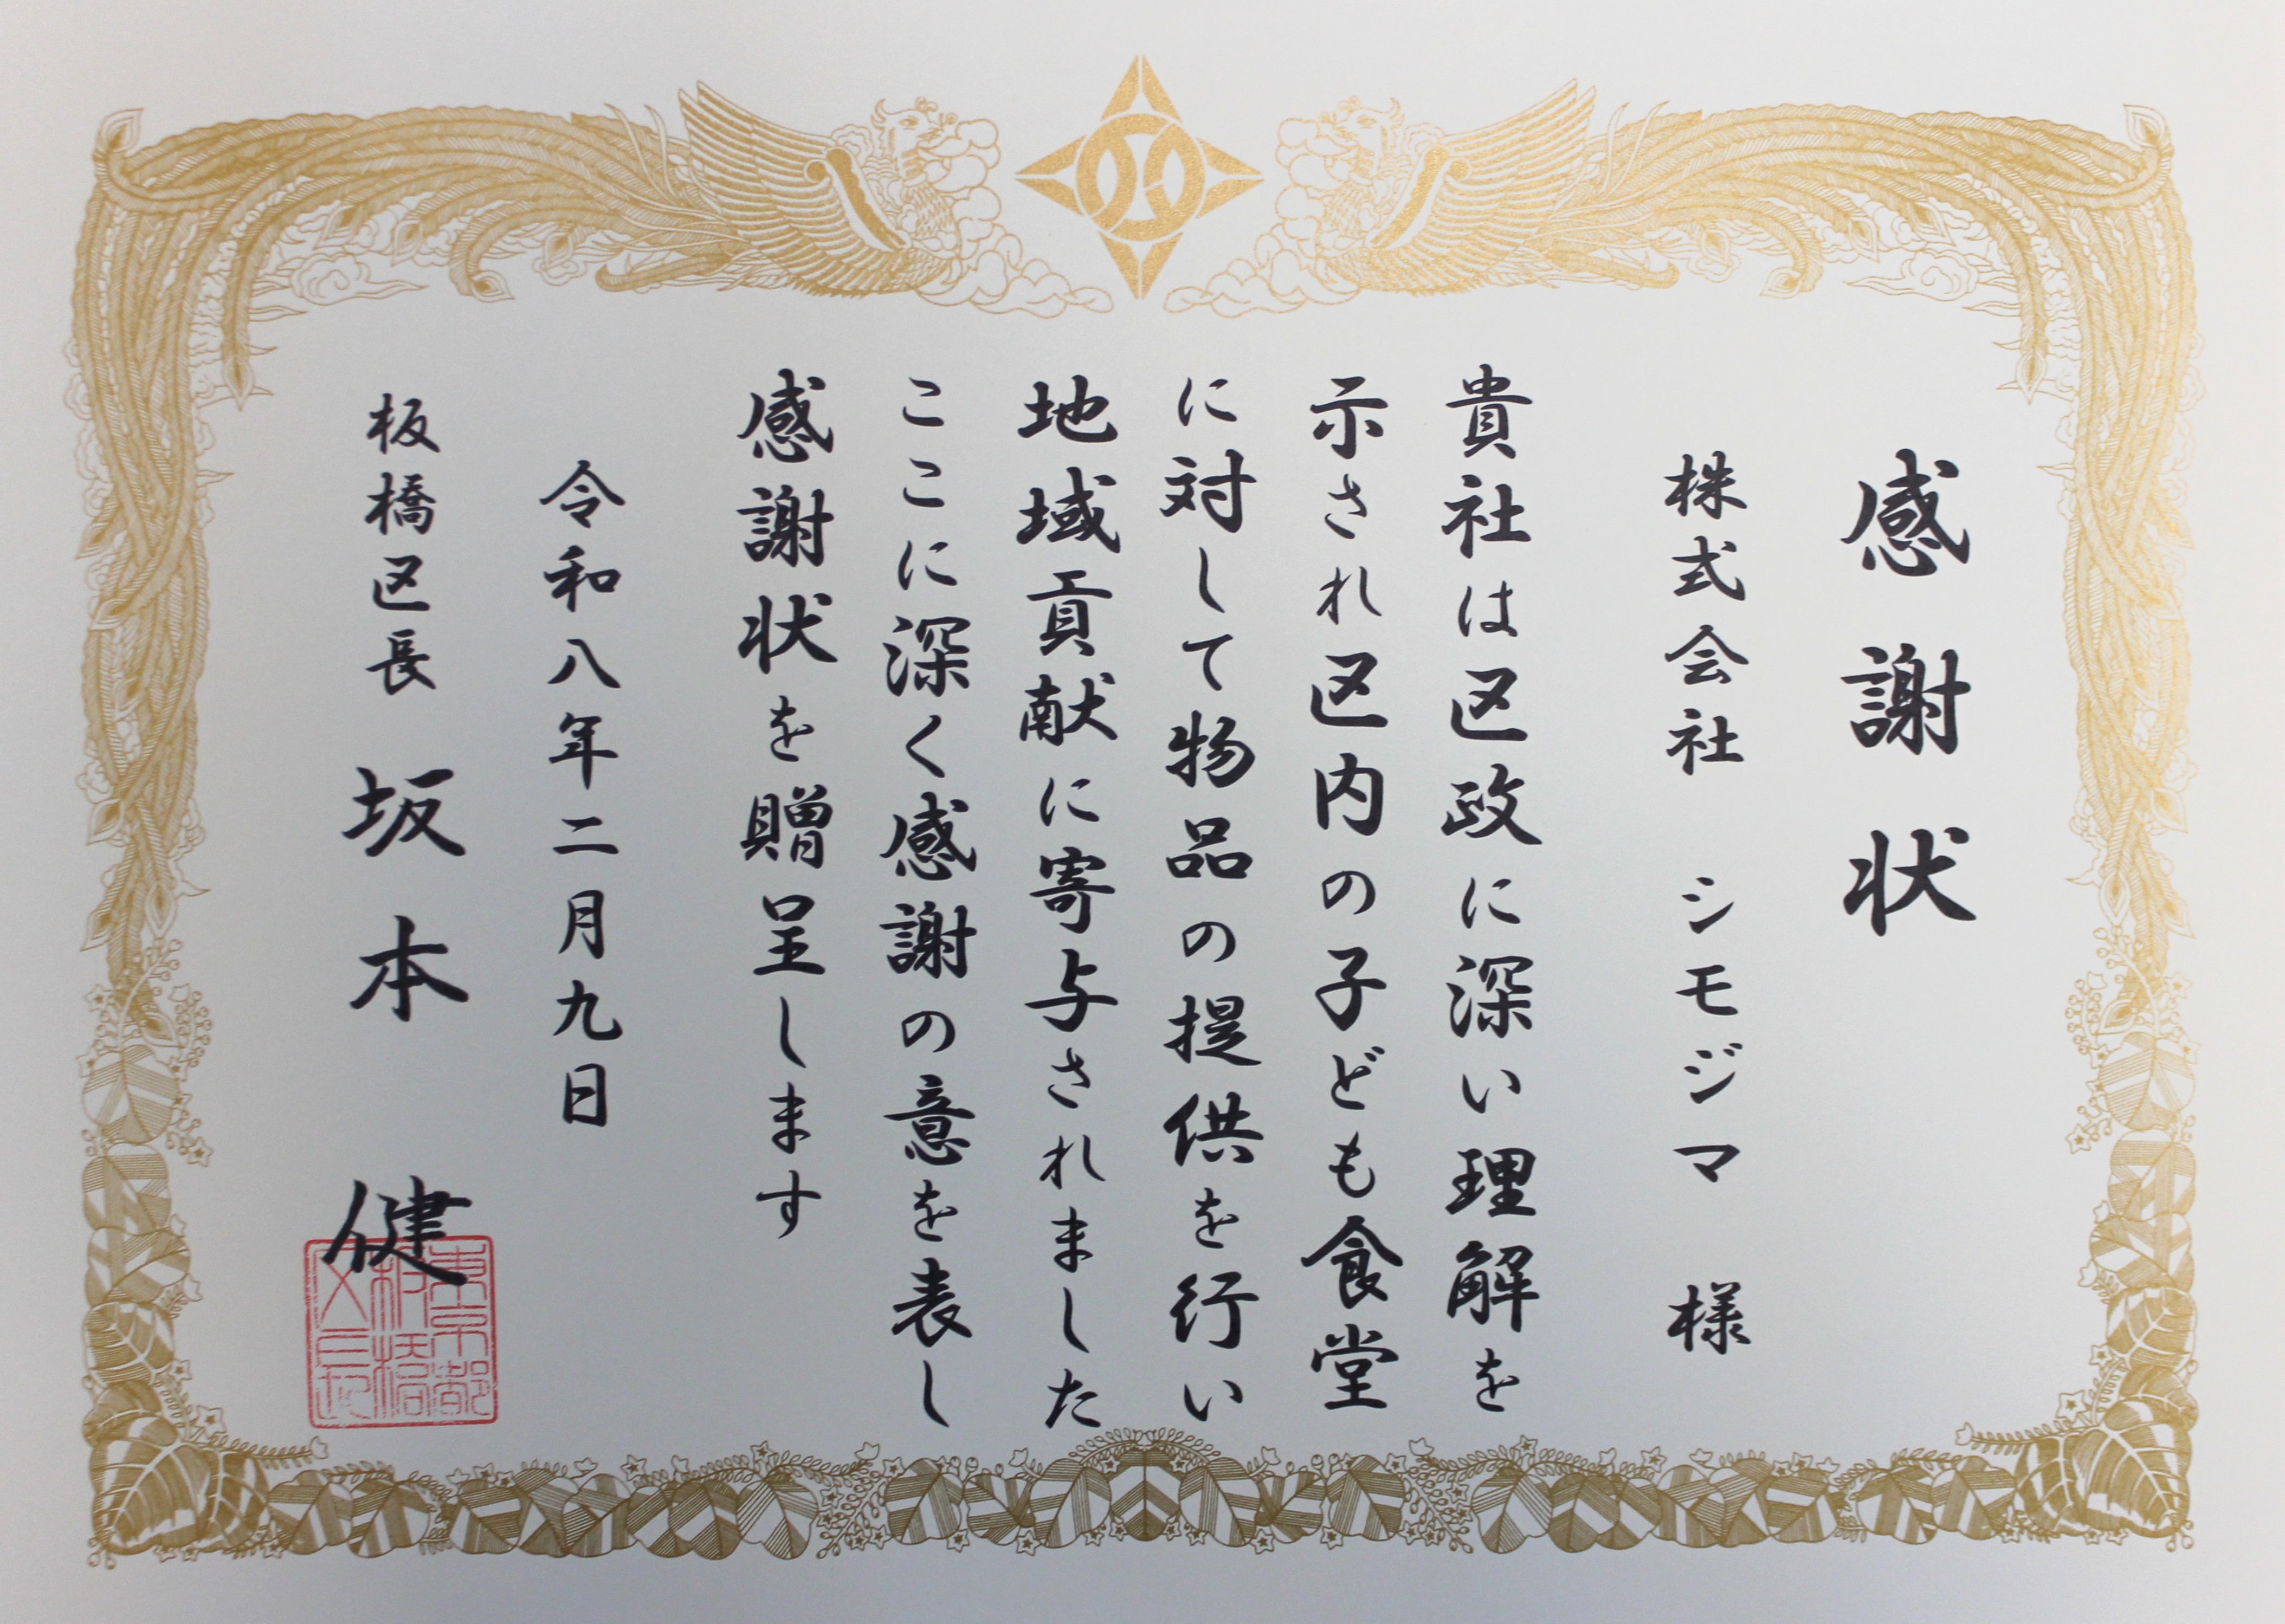 感謝状
株式会社 シモジマ 様
貴社は区政に深い理解を
示され区内の子ども食堂
に対して物品の提供を行い
地域貢献に寄与されました
ここに深く感謝の意を表し
感謝状を贈呈します
令和八年二月九日
板橋区長 坂本 健
東京都
板橋
区長